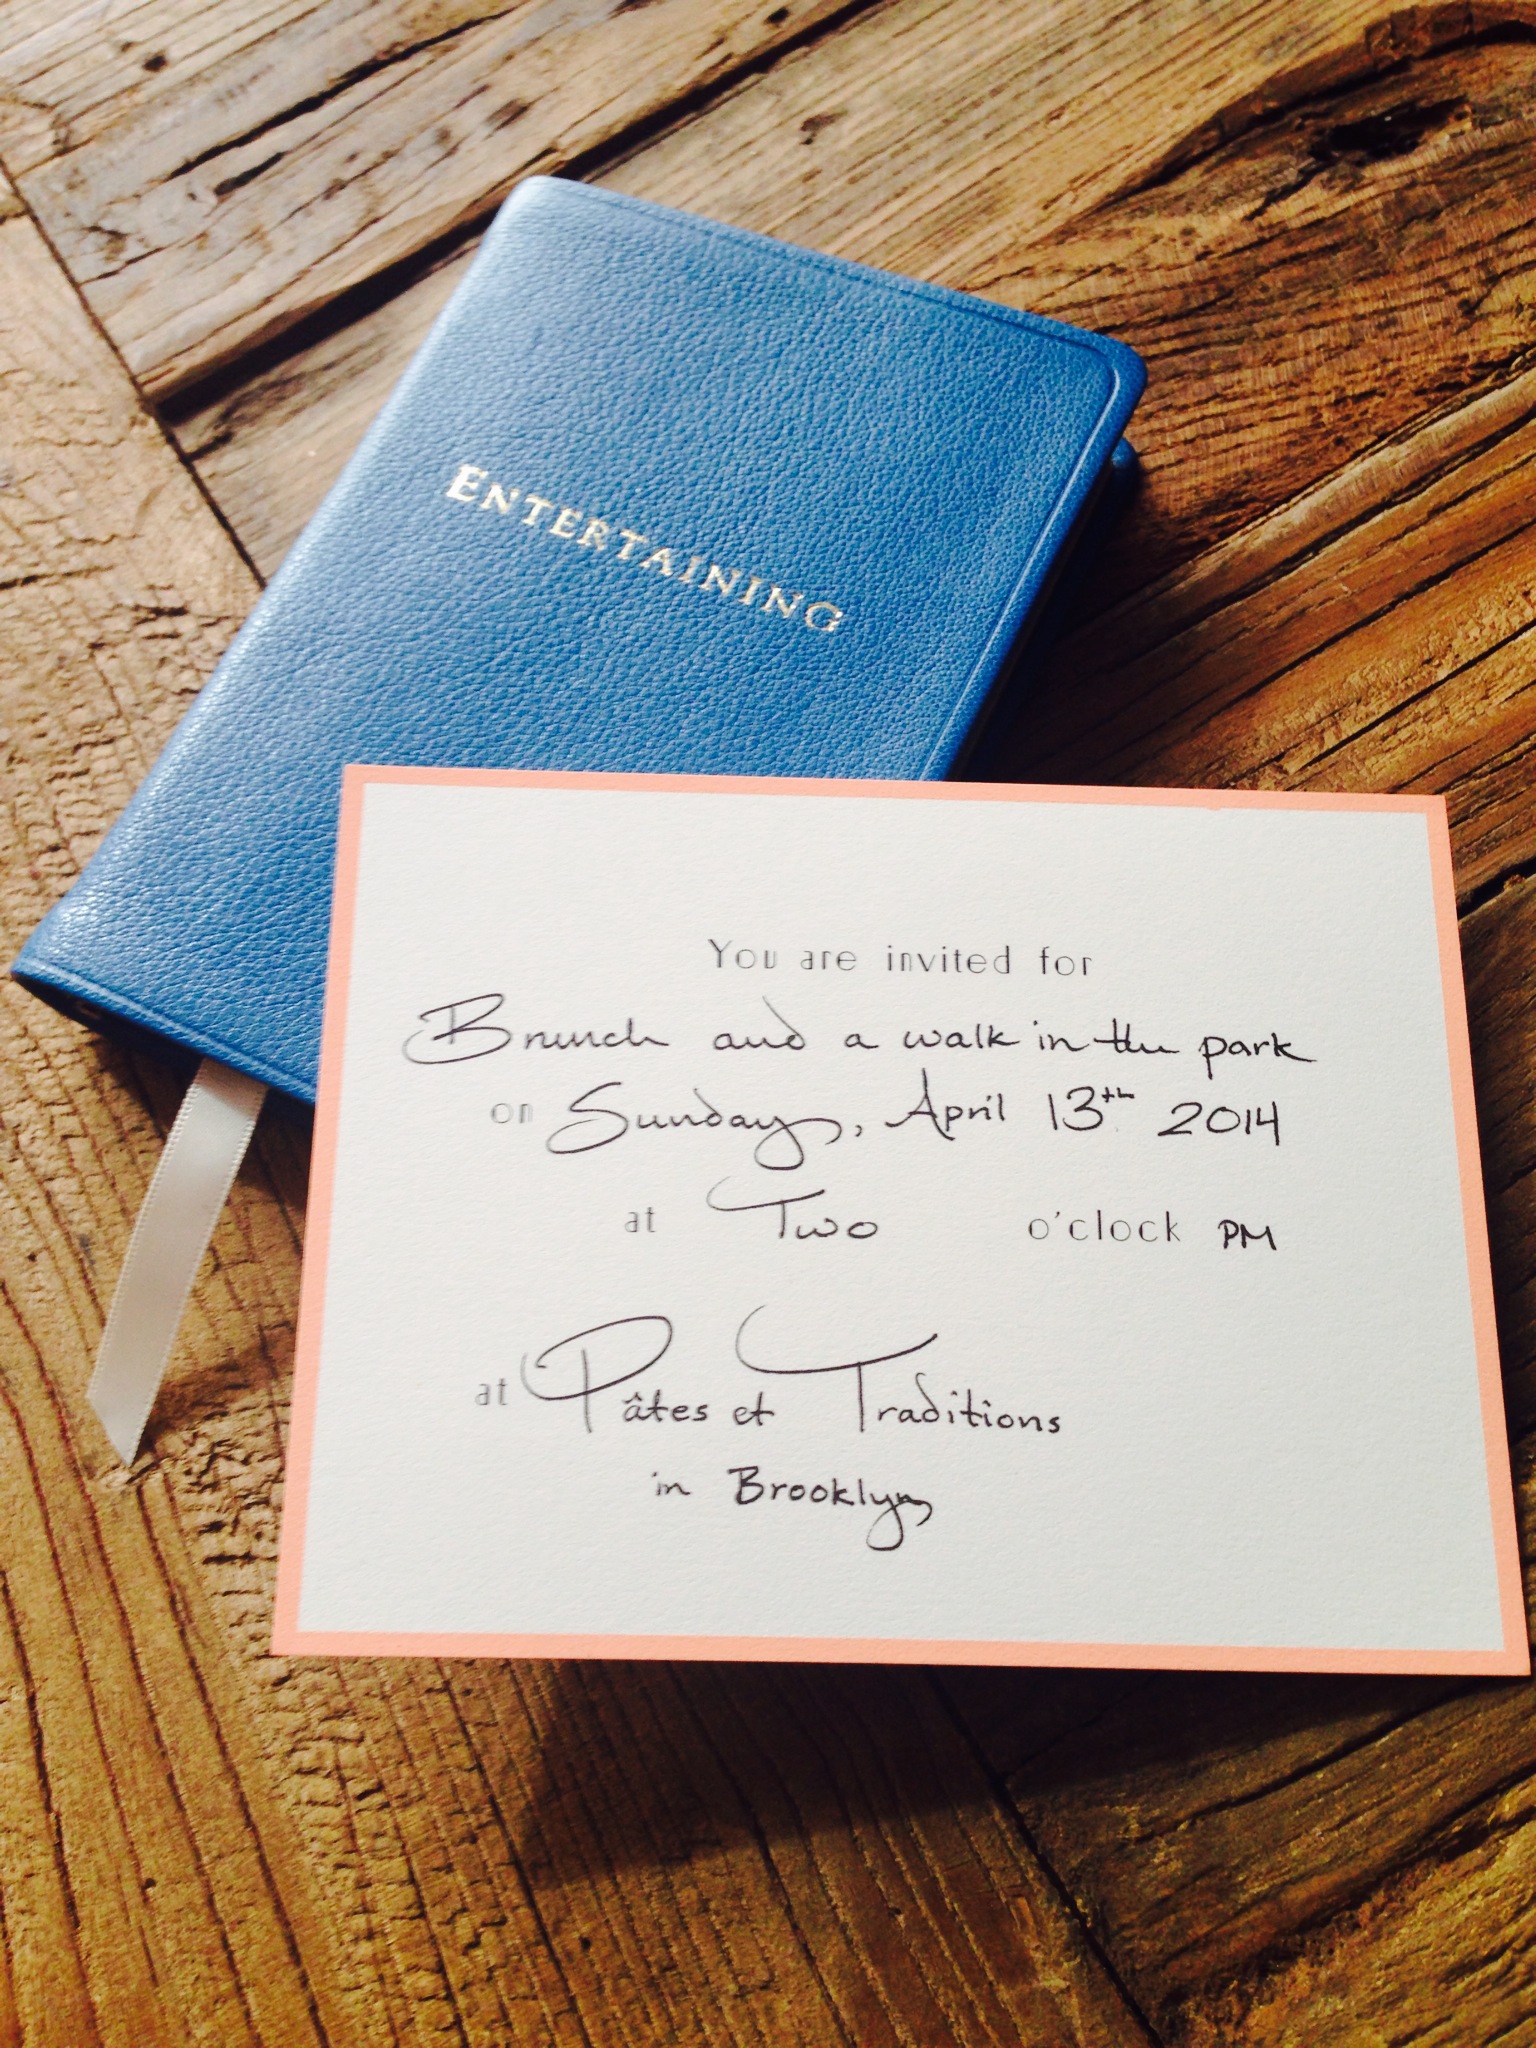 ENTERTAINING
You are invited for
Brunch and a walk in the park
on Sunday, April 13th 2014
at Two o'clock PM
at Pâtes et Traditions
in Brooklyn